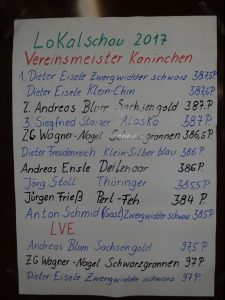 Lokalschau 2017
Vereinsmeister Kaninchen
1. Dieter Eisele Zwergwidder schwarz 387,5P.
Dieter Eisele Klein-Chin 387,5P.
2. Andreas Blum Sachsengold 387P.
3. Siegfried Staiger Alaska 387P.
ZG Wagner-Nagel Schwarzgrannen 386,5P.
Dieter Freudenreich Klein-Silber blau 386P.
Andreas Ensle Deilenaar 386P.
Jörg Stoll Thüringer 385,5P.
Jürgen Frieß Perl-Feh 384 P.
Anton Schmid (Gast) Zwergwidder schwarz 385P.
LVE
Andreas Blum Sachsengold 97,5P.
ZG Wagner-Nagel Schwarzgrannen 97P.
Dieter Eisele Zwergwidder schwarz 97P.